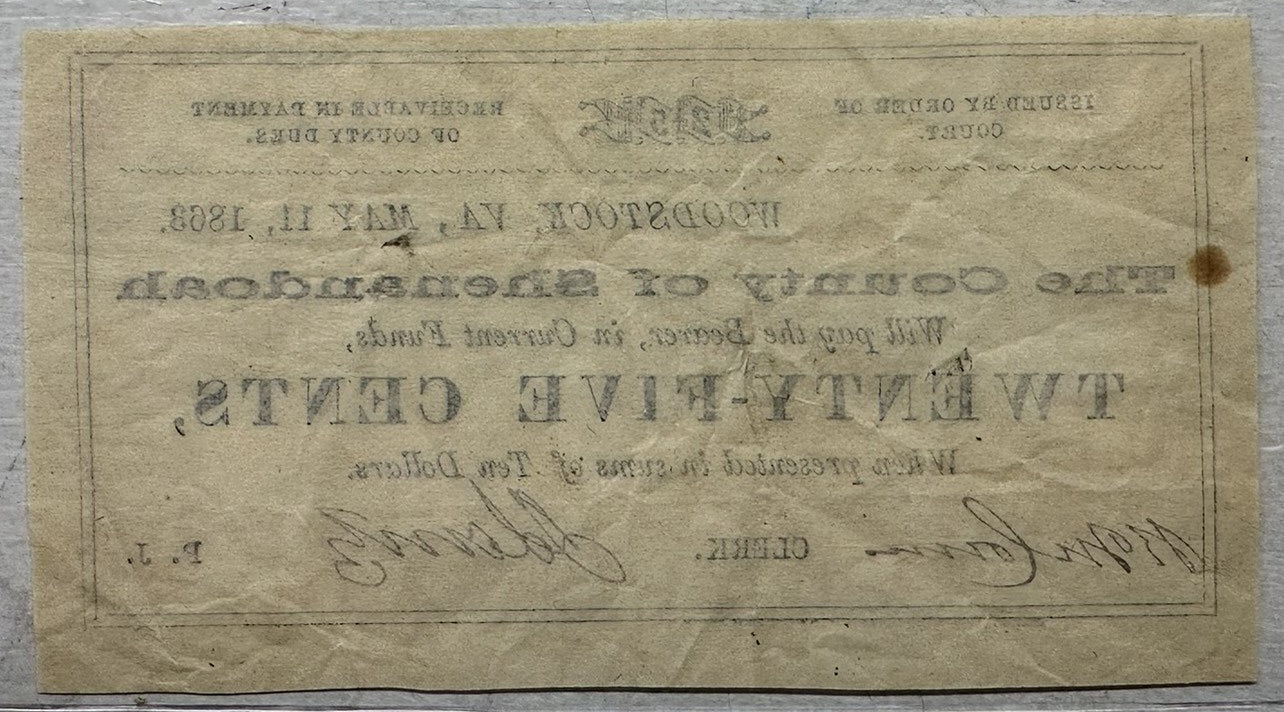 ISSUED BY ORDER OF COURT.
25
RECEIVABLE IN PAYMENT OF COUNTY DUES.
WOODSTOCK, VA, MAY 11, 1863.
The County of Shenandoah
Will pay the Bearer, in Current Funds,
TWENTY-FIVE CENTS,
When presented in sums of Ten Dollars.
CLERK. P. J.